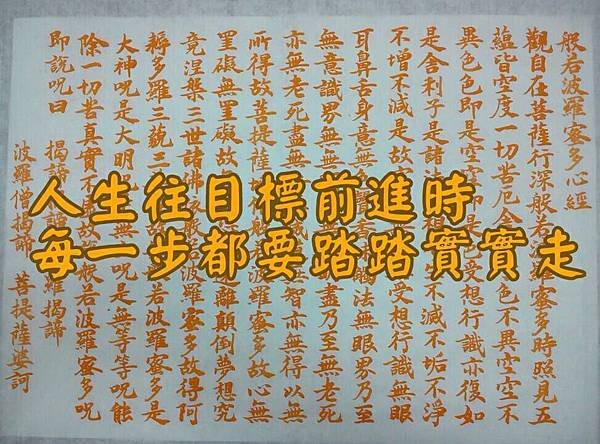 人生往目標前進時
每一步都要踏踏實實走
般若波羅蜜多心經
觀自在菩薩行深般若蜜多時照見五
蘊皆空度一切苦厄舍色不異空空不
異色色即是空空即是受想行識亦復如
是舍利子是諸法不滅不垢不淨
不增不減是故受想行識無眼
耳鼻舌身意無觸法無眼界乃至
無意識界無無盡乃至無老死
亦無老死盡無智亦無得以無
所得故菩提薩波羅蜜多故心無
罣礙無罣礙故遠離顛倒夢想究
竟涅槃三世諸佛般若波羅蜜多故得阿
耨多羅三藐三若波羅蜜多是
大神呪是大明呪呪是無等等呪能
除一切苦真實不般若波羅蜜多呪
即說呪曰 揭諦羅揭諦
波羅僧揭諦 菩提薩婆訶